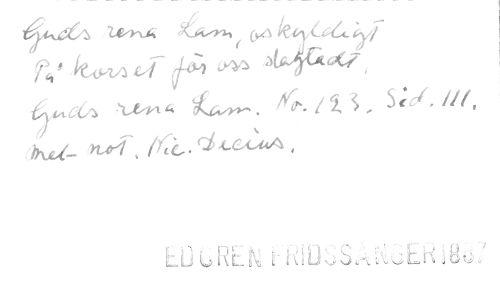 Guds rena Lam, oskyldigt
På korset för oss slagtadt.
Guds rena Lam. No. 123. Sid. 111.
mel- not. Nic. Decius.
EDGREN FRIDSSÅNGER 1887